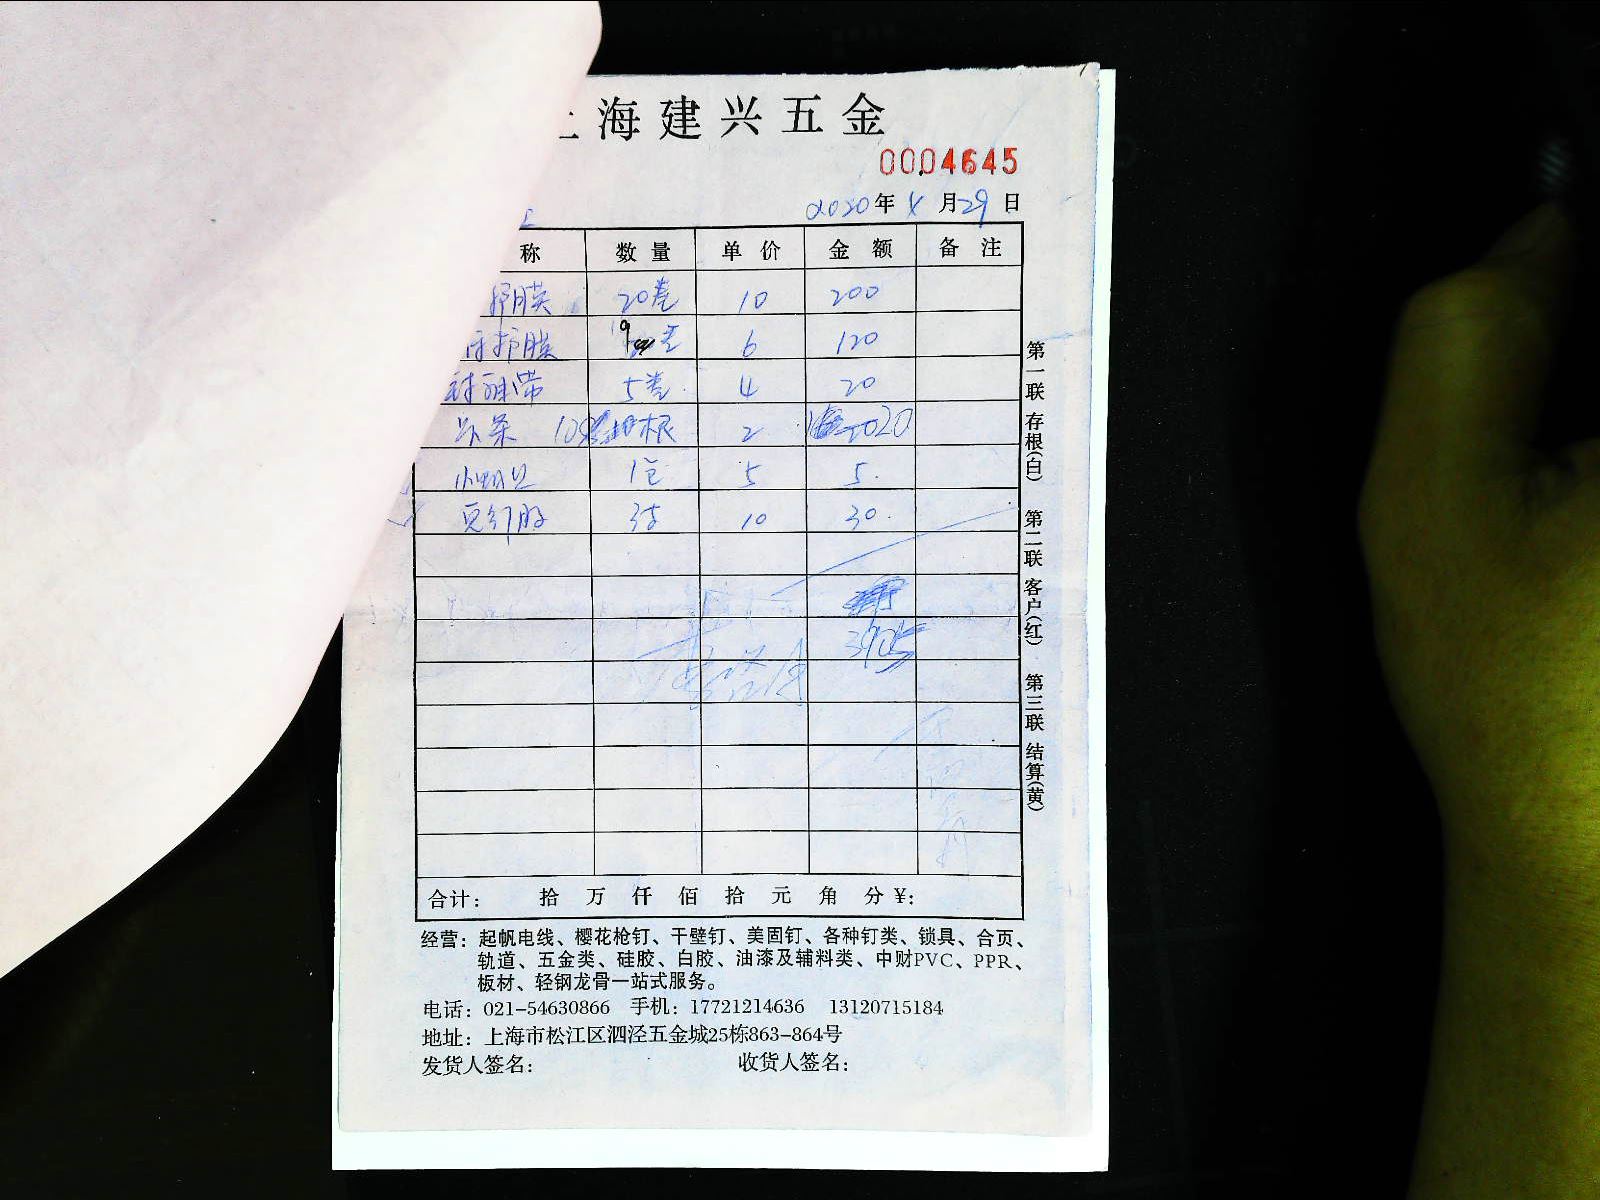 海建兴五金
0004645
2020年4月29日
称 数量 单价 金额 备注
护膜 20卷 10 200
护膜 6 120
5卷 4 20
根 2
1包 5 5.
3支 10 30.
合计: 拾 万 仟 佰 拾 元 角 分¥:
经营: 起帆电线、樱花枪钉、干壁钉、美固钉、各种钉类、锁具、合页、
轨道、五金类、硅胶、白胶、油漆及辅料类、中财PVC、PPR、
板材、轻钢龙骨一站式服务。
电话: 021-54630866 手机: 17721214636 13120715184
地址: 上海市松江区泗泾五金城25栋863-864号
发货人签名: 收货人签名:
第一联 存根(白) 第二联 客户(红) 第三联 结算(黄)